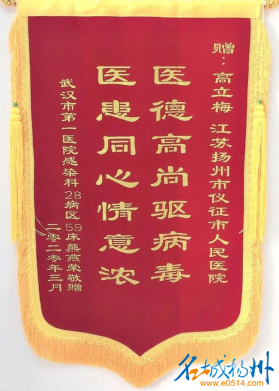 赠：高立梅 江苏扬州市仪征市人民医院
医德高尚驱病毒
医患同心情意浓
武汉市第一医院感染科28病区59床熊燕荣敬赠
二零二零年三月
名城扬州
www.e0514.com